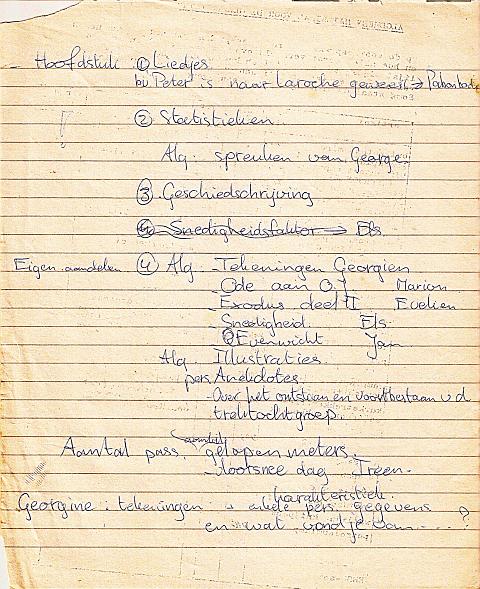 - Hoofdstuk ① Liedjes
bij Peter's naar Laroche geweest →
② Statistieken
Alg. spreuken van George.
③ Geschiedschrijving
④ Snedigheidsfaktor → Els.
Eigen aandelen ④ Alg - Tekeningen Georgien
- Ode aan O.J. Marion
- Exodus deel II Evelien
- Snedigheid. Els.
- Evenwicht Jan
Alg. Illustraties.
pers. Anekdotes.
- Over het ontstaan en voortbestaan v.d
trektochtgroep.
Aantal pass. gelopen meters.
- doorsnee dag Treen.
karakteristiek.
Georgine: tekeningen enkele pers. gegevens
en wat vond je van ---- ?